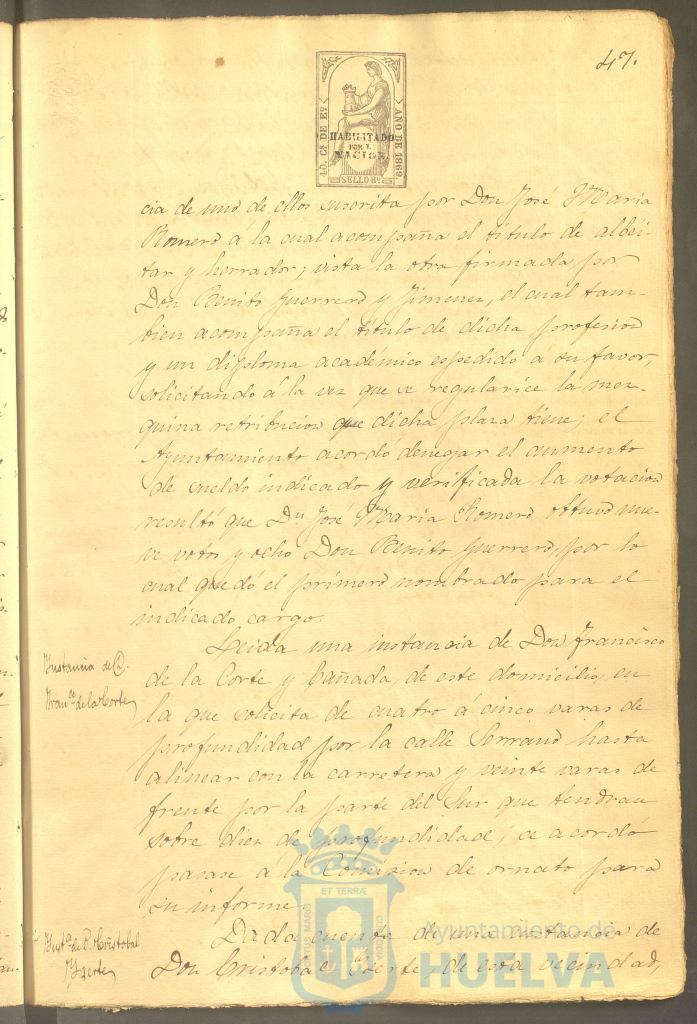 47.
40. Cs DE Eo
AÑO DE 1869.
HABILITADO
POR LA
NACION.
SELLO 8º
cia de uno de ellos suscrita por Don José Maria
Romero a la cual acompaña el titulo de albéi-
tar y herrador; vista la otra firmada por
Don Benito Guerrero y Jimenez, el cual tam-
bien acompaña el titulo de dicha profesion
y un diploma academico espedido a su favor,
solicitando á la vez que se regularice la mez-
quina retribucion que dicha plaza tiene; el
Ayuntamiento acordó denegar el aumento
de sueldo indicado y verificada la votacion
resultó que Dn José Maria Romero obtuvo nue-
ve votos y ocho Don Benito Guerrero, por lo
cual quedó el primero nombrado para el
indicado cargo.
Instancia de D.
Franco de la Corte
Leida una instancia de Don Francisco
de la Corte y Cañada, de este domicilio, en
la que solicita de cuatro á cinco varas de
profundidad por la calle Serrano hasta
alinear con la carretera y veinte varas de
frente por la parte del Sur que tendran
sobre diez de profundidad; se acordó
pasase á la Comision de ornato para
su informe
Insta de D. Cristobal
Huerte
Dada cuenta de una instancia de
Don Cristobal Huerte, de esta vecindad,
ET TERRÆ
PORTUS MARIS
CUSTODIA
Ayuntamiento de
HUELVA